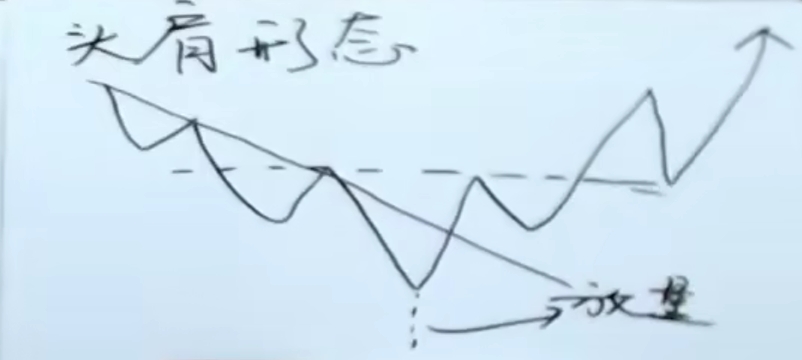 头肩形态
放量